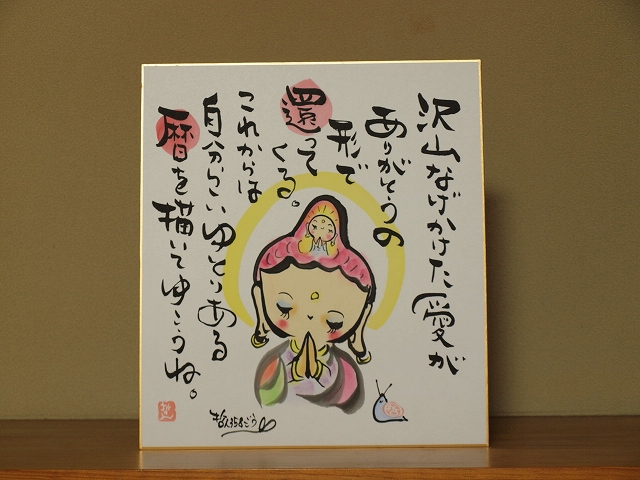 沢山なげかけた愛が
ありがとうの
形で
還って
くる。
これからは
自分らしいゆとりある
暦を描いてゆこうね。